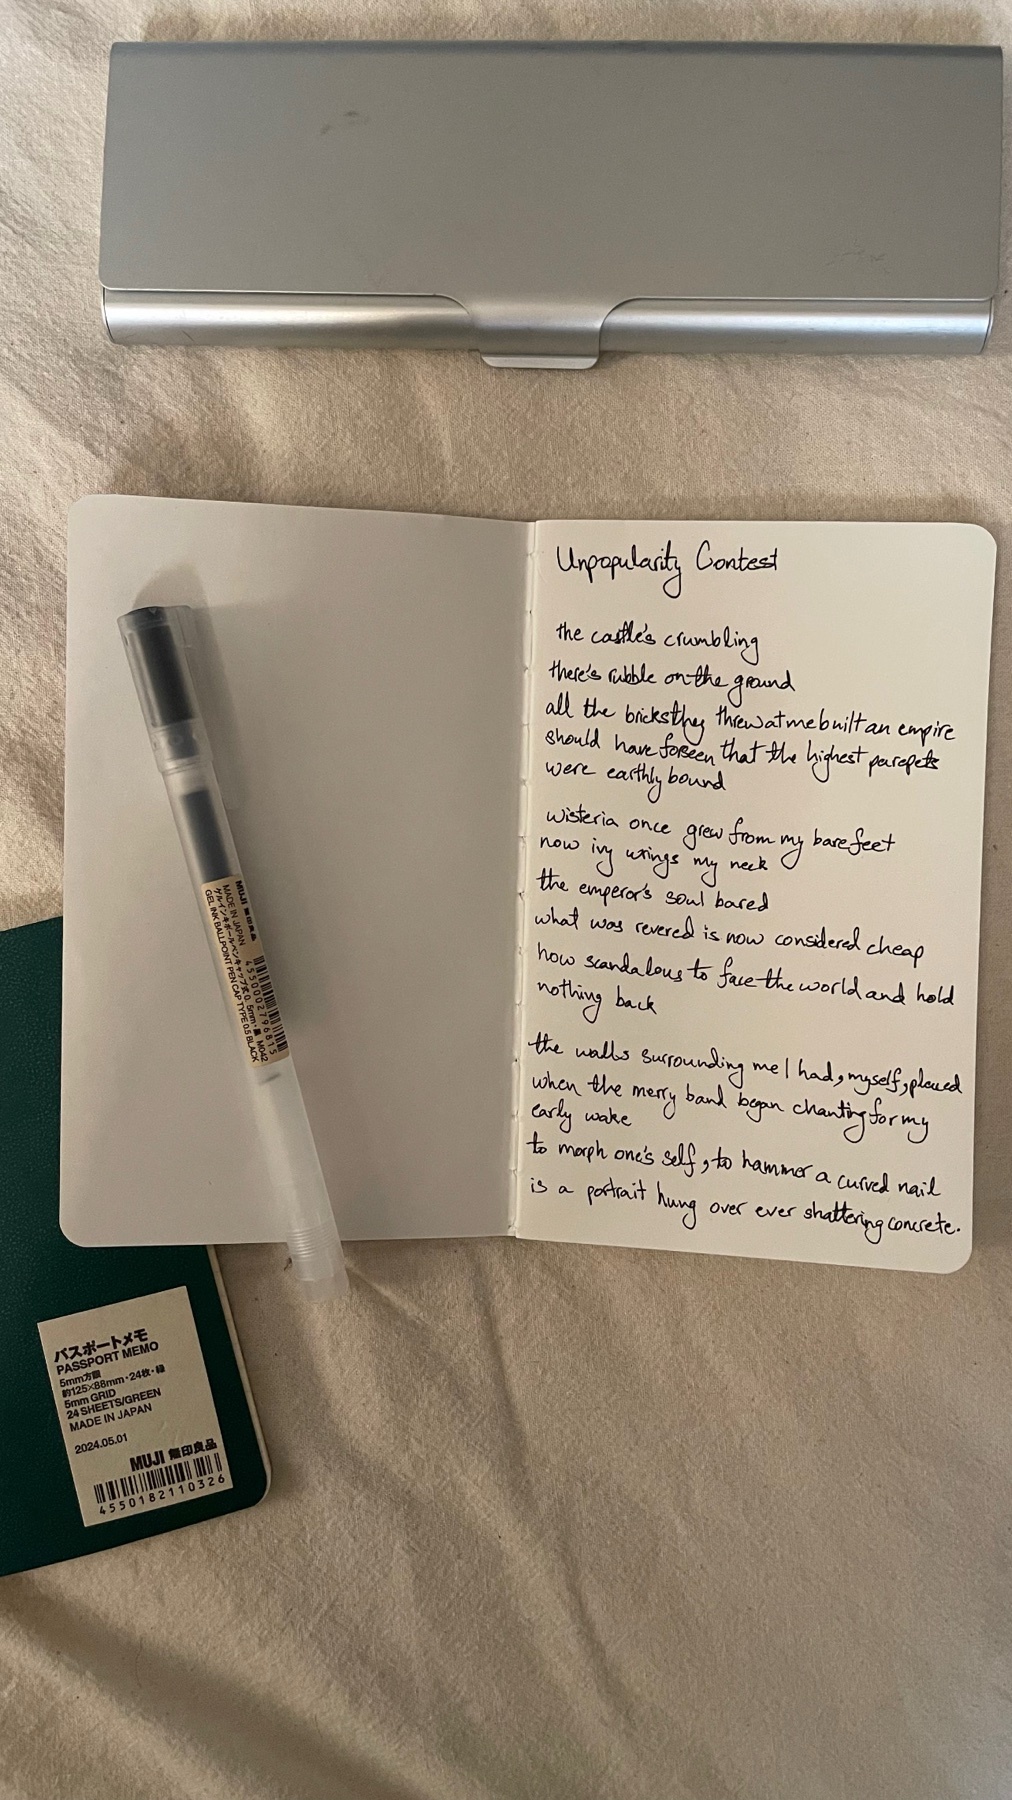 Unpopularity Contest
the castle's crumbling
there's rubble on the ground
all the bricks they threw at me built an empire
should have forseen that the highest parapets
were earthly bound
wisteria once grew from my bare feet
now ivy wrings my neck
the emperor's soul bared
what was revered is now considered cheap
how scandalous to face the world and hold
nothing back
the walls surrounding me I had, myself, placed
when the merry band began chanting for my
early wake
to morph one's self, to hammer a curved nail
is a portrait hung over ever shattering concrete.
MUJI 無印良品
MADE IN JAPAN
ゲルインキボールペンキャップ式 0.5mm・黒 M042
GEL INK BALLPOINT PEN CAP TYPE 0.5 BLACK
4550002796815
パスポートメモ
PASSPORT MEMO
5mm方眼
約125×88mm・24枚・緑
5mm GRID
24 SHEETS/GREEN
MADE IN JAPAN
2024.05.01
MUJI 無印良品
4550182110326